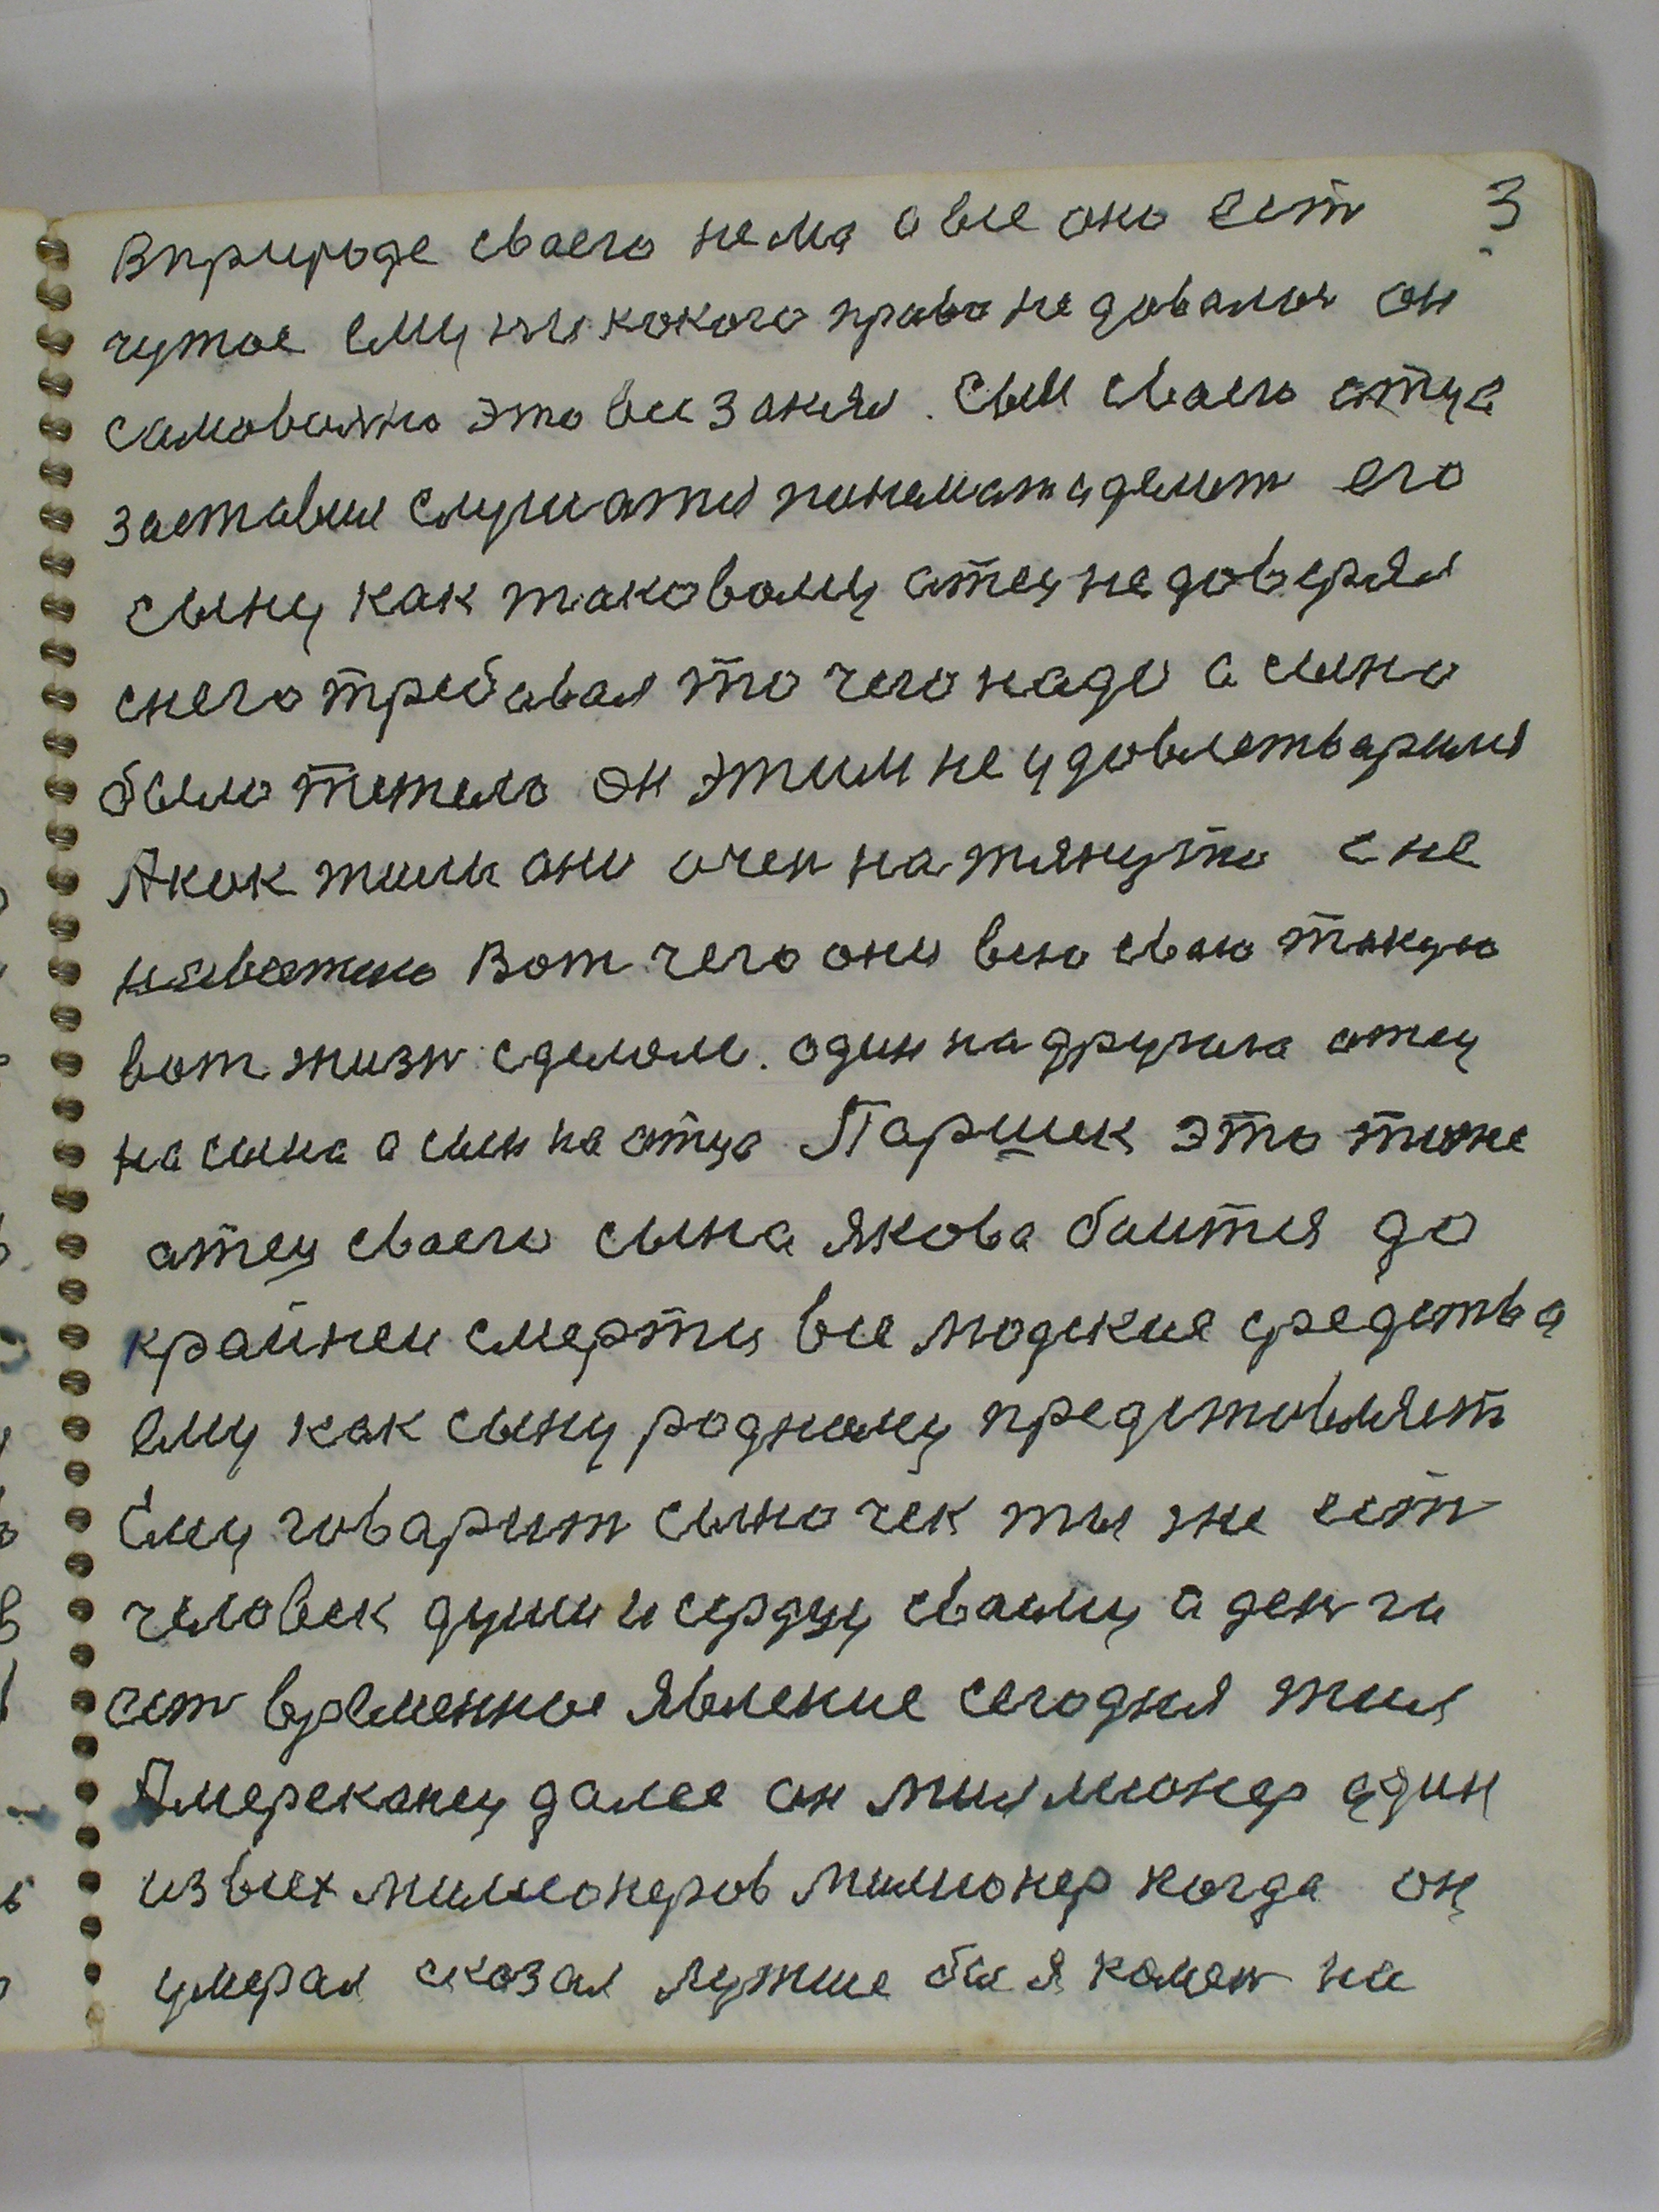 3
В природе сваего нема а все оно ест
чужое ему никокого права недавалос он
самовольно это все занял. Сын сваего отца
заставил слушатся понемат а делит его
сыну как таковому атец не доверял
снего требавал то чего надо а сына
было тежело он этим не удовлетварился
А как жили они очен натянуто с не
навестью Вот чего они всю сваю такую
вот жизн сделоле. один на другога отец
на сына а сын на отца Паршек это тоже
атец сваего сына якова баится до
крайней смерти все людские средства
ему как сыну родному предстовляет
Ему говарит сыночек ты же ест
человек души и сердцу сваему а денги
ест временное явление сегодня жил
Амереканец далее он миллионер один
из всех милионеров милионер когда он
умерал сказал лутше бы я камен на